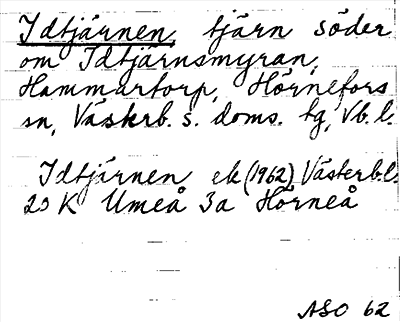 Idtjärnen, tjärn söder
om Idtjärnsmyran,
Hammartorp, Hörnefors
sn, Västerb. s. doms. tg, Vb. l.
Idtjärnen ek (1962) Västerb.l.
20 K Umeå 3a Hörneå
ASO 62